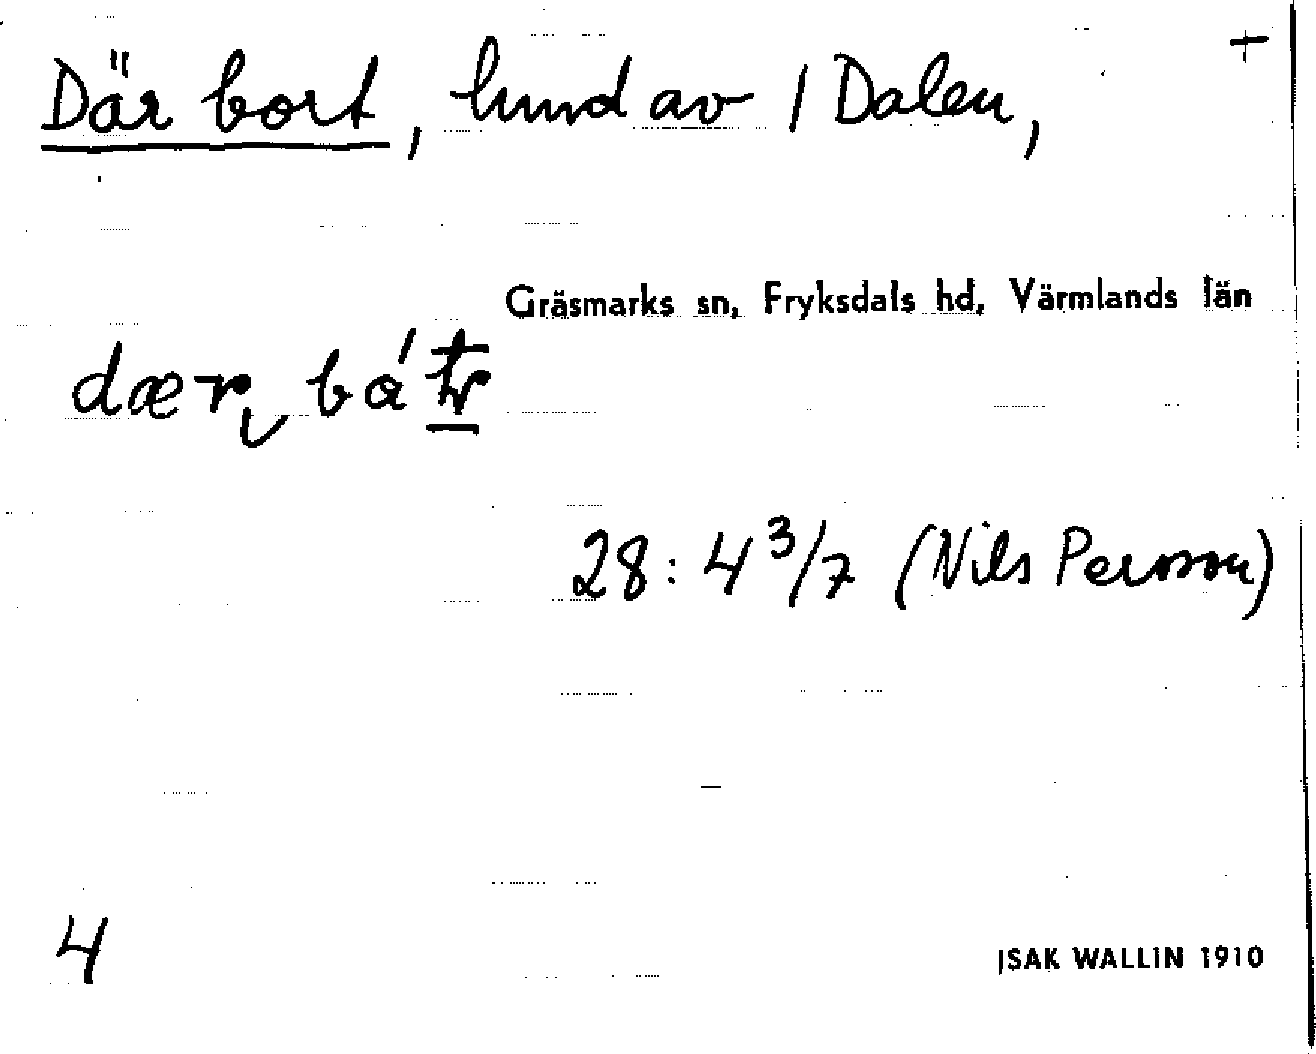 +
Där bort, hmnd av 1 Dalen,
Gräsmarks sn, Fryksdals hd, Värmlands län
dær
28: 4 3/7 (Nils Persson)
4
ISAK WALLIN 1910